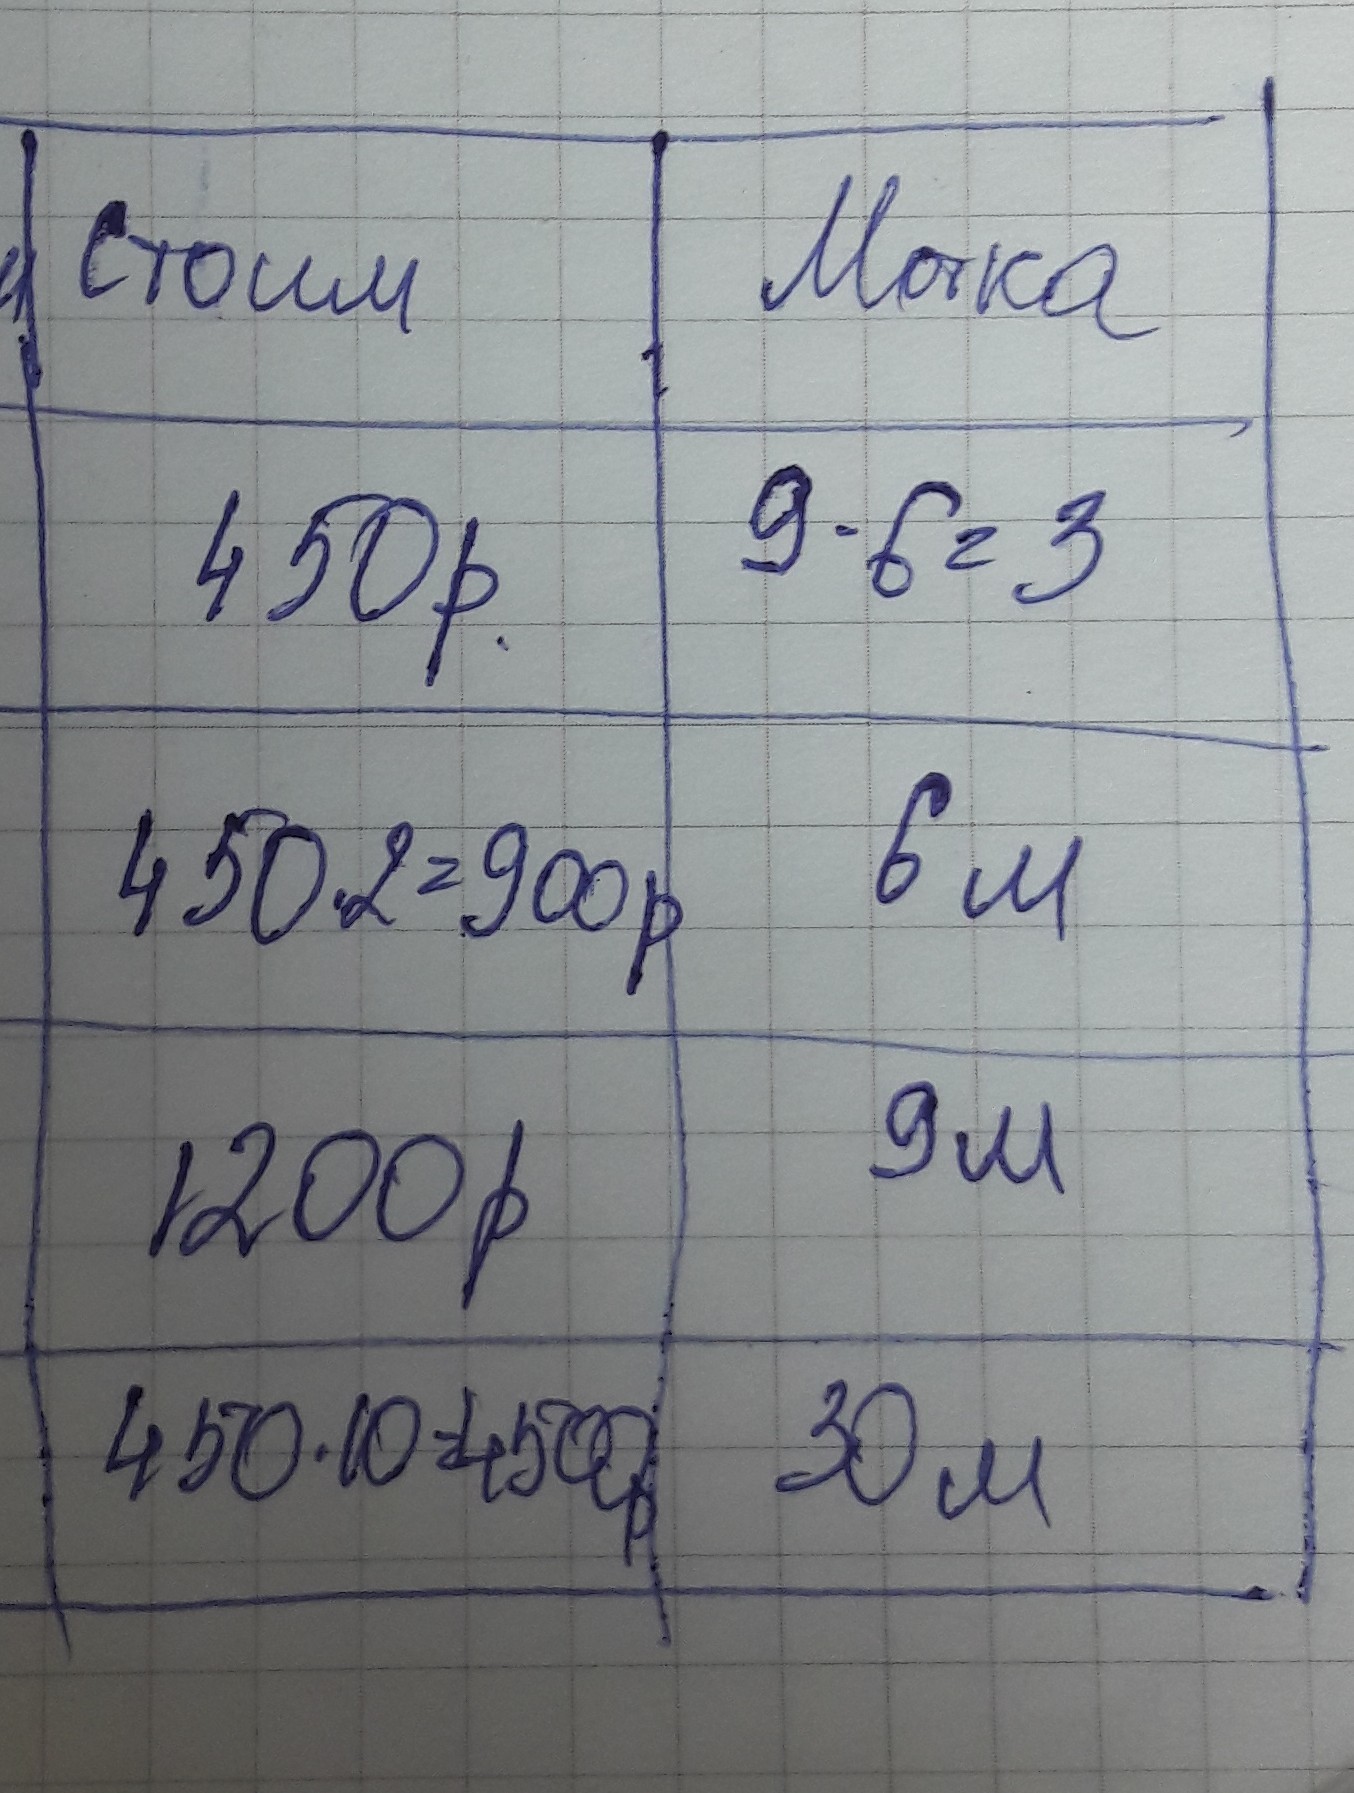 Стоим Мотка
450р. 9-6=3
450.2=900р 6 м
1200р 9м
450.10=4500р 30 м